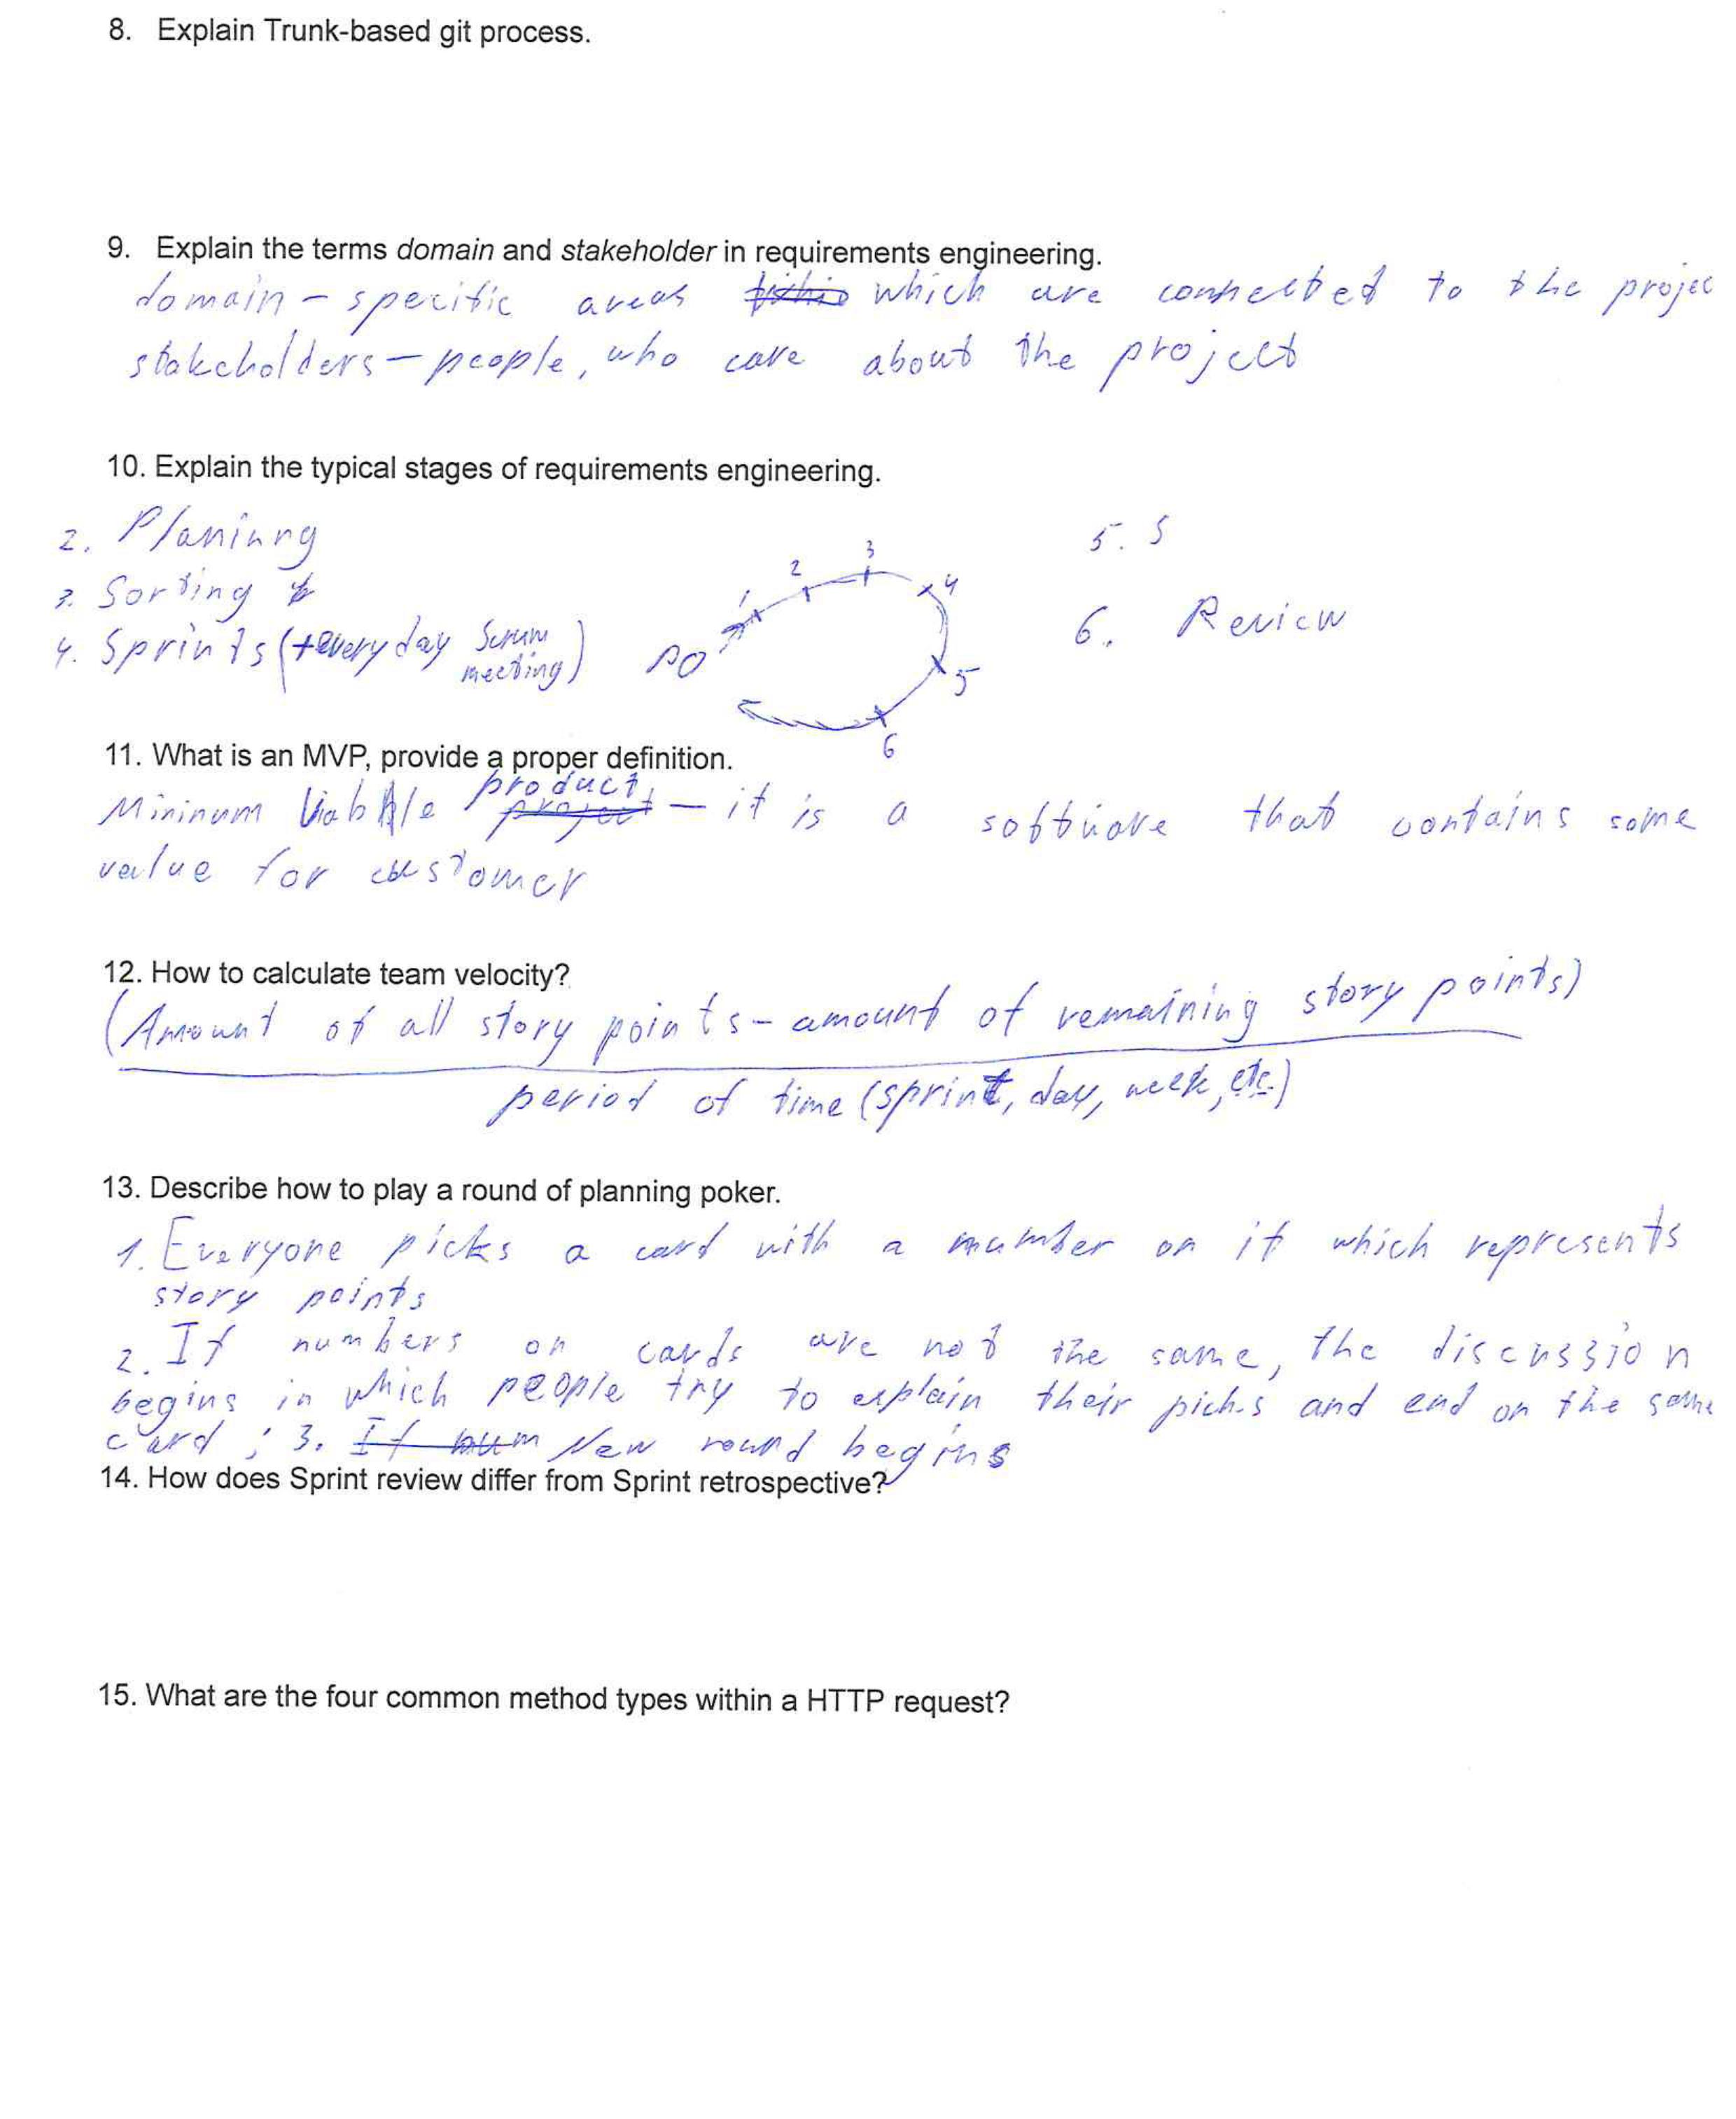 8. Explain Trunk-based git process.
9. Explain the terms domain and stakeholder in requirements engineering.
domain - specific areas which are connected to the projec
stakeholders - people, who care about the project
10. Explain the typical stages of requirements engineering.
2. Planinng
3. Sorting
4. Sprints (+every day Scrum meeting)
PO 1 2 3 4 5 6
5. S
6. Review
11. What is an MVP, provide a proper definition.
Mininum Viable product - it is a software that contains some
value for customer
12. How to calculate team velocity?
(Amount of all story points - amount of remaining story points)
period of time (sprint, day, week, etc.)
13. Describe how to play a round of planning poker.
1. Everyone picks a card with a number on it which represents
story points
2. If numbers on cards are not the same, the discussion
begins in which people try to explain their picks and end on the same
card ; 3. If num New round begins
14. How does Sprint review differ from Sprint retrospective?
15. What are the four common method types within a HTTP request?